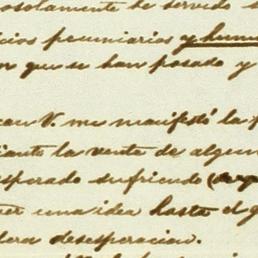 osolamente de servido
icios pecuniarios y
n que se han pasado y
V. me manifestó la
iante la venta de algun
esperado sufriendo
er una idea hasta el g
dera desesperacion.